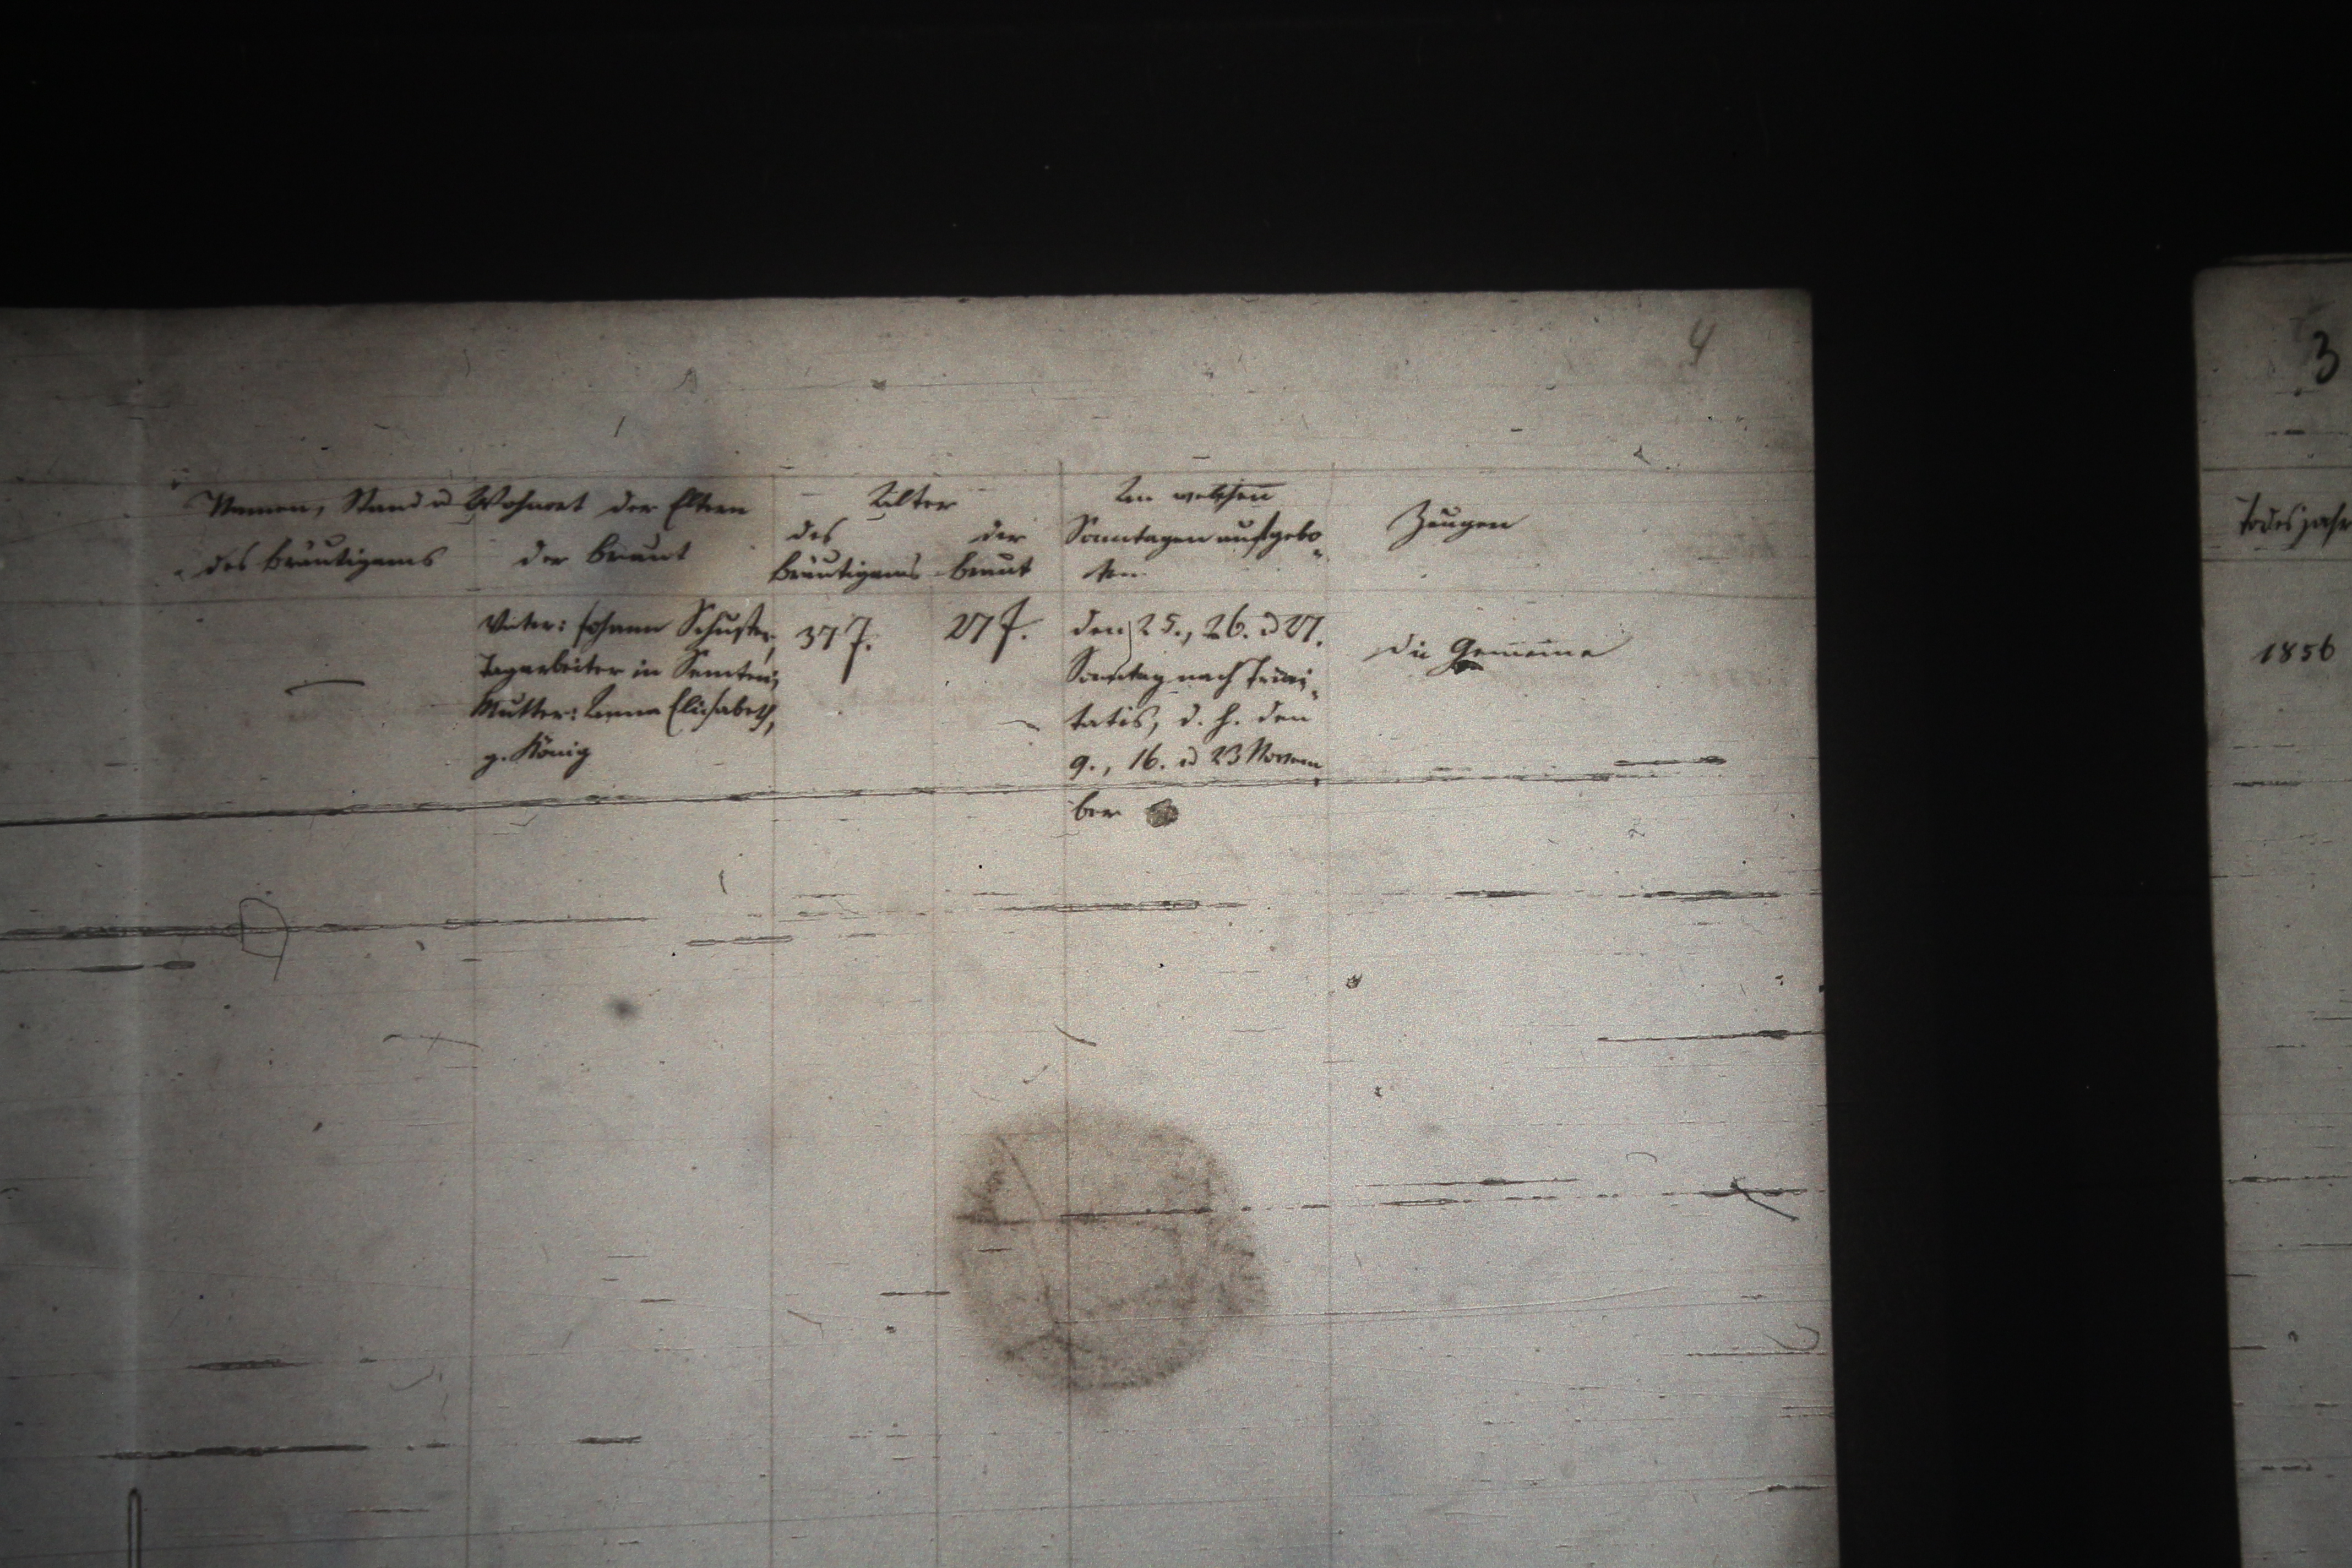 4
Namen, Stand u Wohnort der Eltern
des Bräutigams
der Braut
Alter
des Bräutigams
der Braut
An welchen
Sonntagen aufgebo-
ten
Zeugen
—
Vater: Johann Schuster,
Tagarbeiter in
Mutter: Anna Elisabeth,
g. König
37 J.
27 J.
den 25., 26. u 27.
Sonntag nach Trini-
tatis, d. h. den
9., 16. u 23 Novem-
ber
die Gemeine
3
Todesjahr
1856